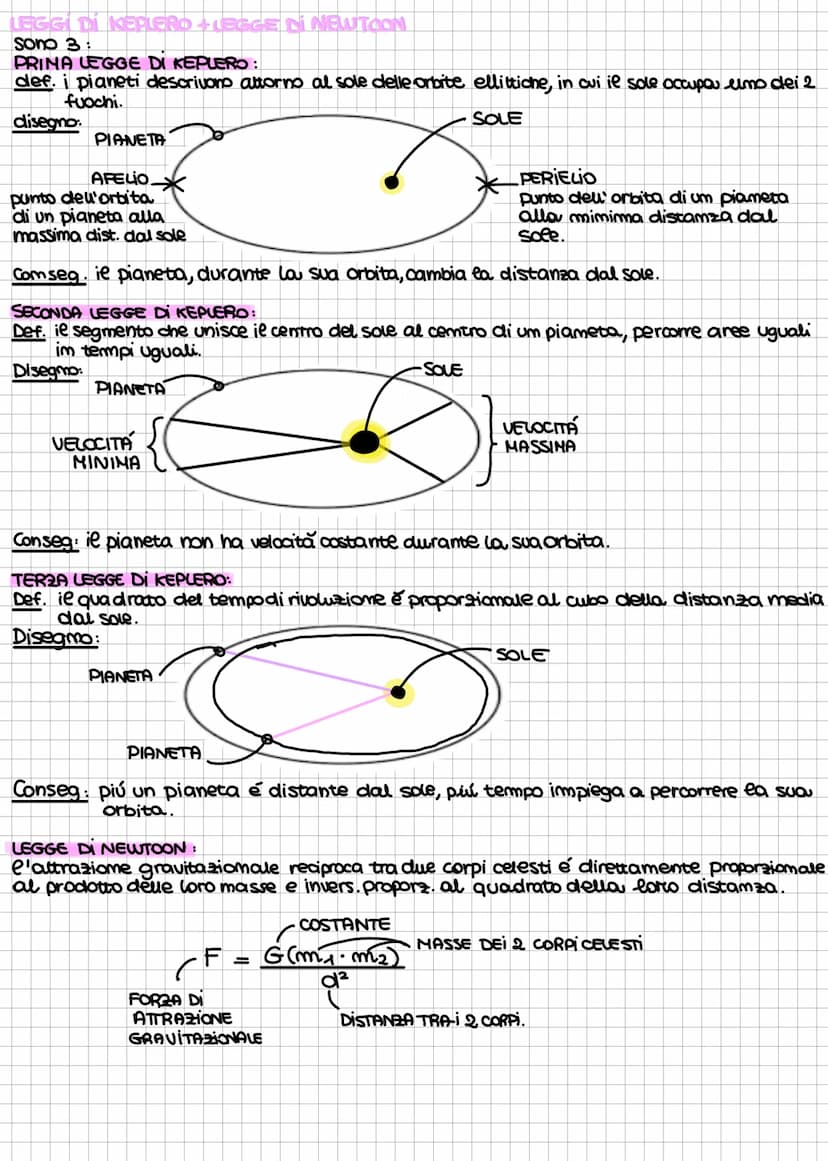 LEGGI DI KEPLERO + LEGGE DI NEWTOON
sono 3:
PRIMA LEGGE DI KEPLERO:
def. i pianeti descrivono attorno al sole delle orbite ellittiche, in cui il sole occupa uno dei 2
fuochi.
disegno:
PIANETA
SOLE
AFELIO
punto dell'orbita
di un pianeta alla
massima dist. dal sole
PERIELIO
punto dell'orbita di un pianeta
alla minima distanza dal
sole.
Conseg. il pianeta, durante la sua orbita, cambia la distanza dal sole.
SECONDA LEGGE DI KEPLERO:
Def. il segmento che unisce il centro del sole al centro di un pianeta, percorre aree uguali
in tempi uguali.
Disegno:
PIANETA
SOLE
VELOCITÁ
MINIMA
VELOCITÁ
MASSIMA
Conseg: il pianeta non ha velocitá costante durante la sua orbita.
TERZA LEGGE DI KEPLERO:
Def. il quadrato del tempo di rivoluzione é proporzionale al cubo della distanza media
dal sole.
Disegno:
PIANETA
SOLE
PIANETA
Conseg: piú un pianeta é distante dal sole, piú tempo impiega a percorrere la sua
orbita.
LEGGE DI NEWTOON:
l'attrazione gravitazionale reciproca tra due corpi celesti é direttamente proporzionale
al prodotto delle loro masse e invers. proporz. al quadrato della loro distanza.
COSTANTE
F = G(m₁ · m₂)
MASSE DEI 2 CORPI CELESTI
d²
FORZA DI
ATTRAZIONE
GRAVITAZIONALE
DISTANZA TRA I 2 CORPI.